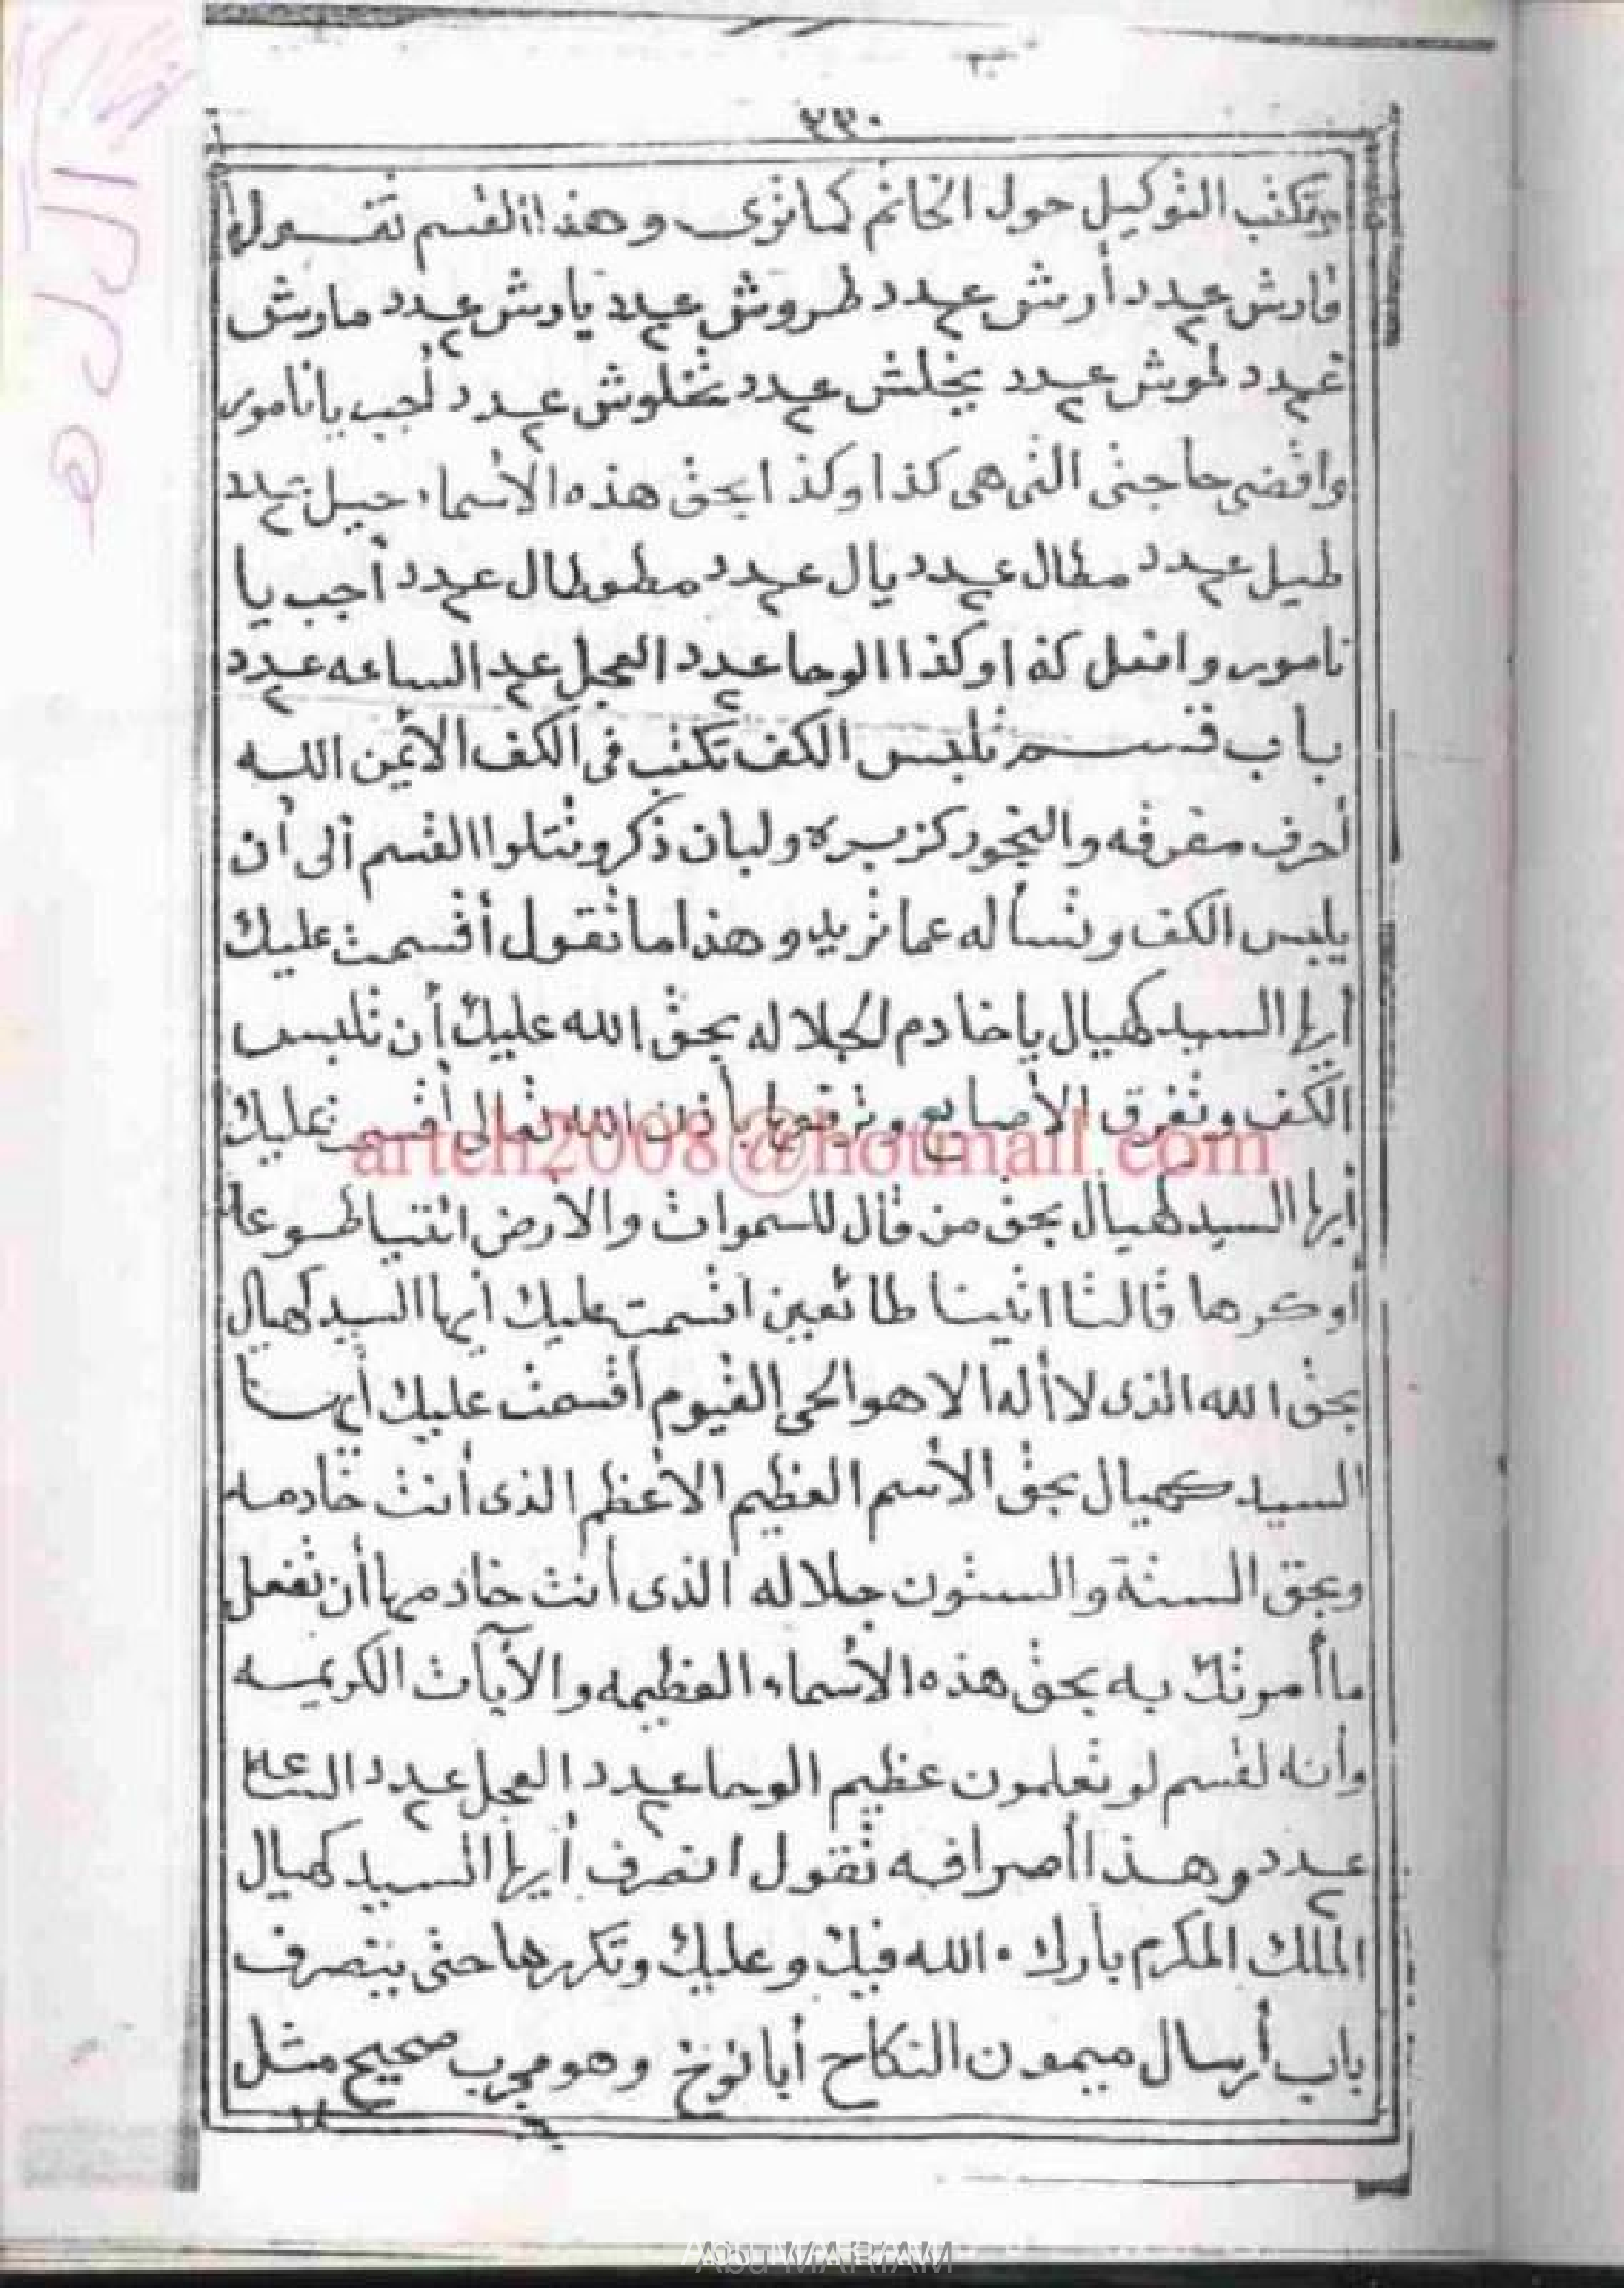 ٢٣٠
وتكتب التوكيل حول الخاتم كما ترى وهذا القسم تقول
قارش عدد أرش عدد طروش عدد يارش عدد مارش
عدد لموش عدد بخلش عدد شخلوش عدد أجب يا نامور
واقضى حاجتى التى هى كذا وكذا بحق هذه الأسماء حيل عدد
طيل عدد مطال عدد يال عدد مطوطال عدد أجب يا
نامور وافعل كذا وكذا الوحا عدد العجل عدد الساعه عدد
باب قسم تلبس الكف تكتب فى الكف الأيمن الله
أحرف مفرقه والبخور كزبره ولبان ذكر وتتلوا القسم ألى أن
يلبس الكف وتسأله عما تريد وهذا ما تقول أقسمت عليك
أيها السيد كهيال يا خادم لجلاله بحق الله عليك أن تلبس
الكف وتفرق الأصابع وترفعها بأذن الله تعالى أقسمت عليك
arteh2008@hotmail.com
أيها السيد كهيال بحق من قال للسموات والأرض ائتيا طوعا
أو كرها قالتا اتينا طائعين اقسمت عليك أيها السيد كهيال
بحق الله الذى لا أله الا هو الحى القيوم أقسمت عليك أيها
السيد كهيال بحق الأسم العظيم الأعظم الذى أنت خادمه
وبحق الستة والستون جلاله الذى أنت خادمها أن تفعل
ما أمرتك به بحق هذه الأسماء العظيمه والآيات الكريمه
وأنه لقسم لو تعلمون عظيم الوحا عدد العجل عدد الساعة
عدد وهذا أصرافه تقول انصرف أيها السيد كهيال
الملك المكرم بارك الله فيك وعليك وتكررها حتى ينصرف
باب أرسال ميمون النكاح أبا نوخ وهو مجرب صحيح مثل
Abu MARIAM